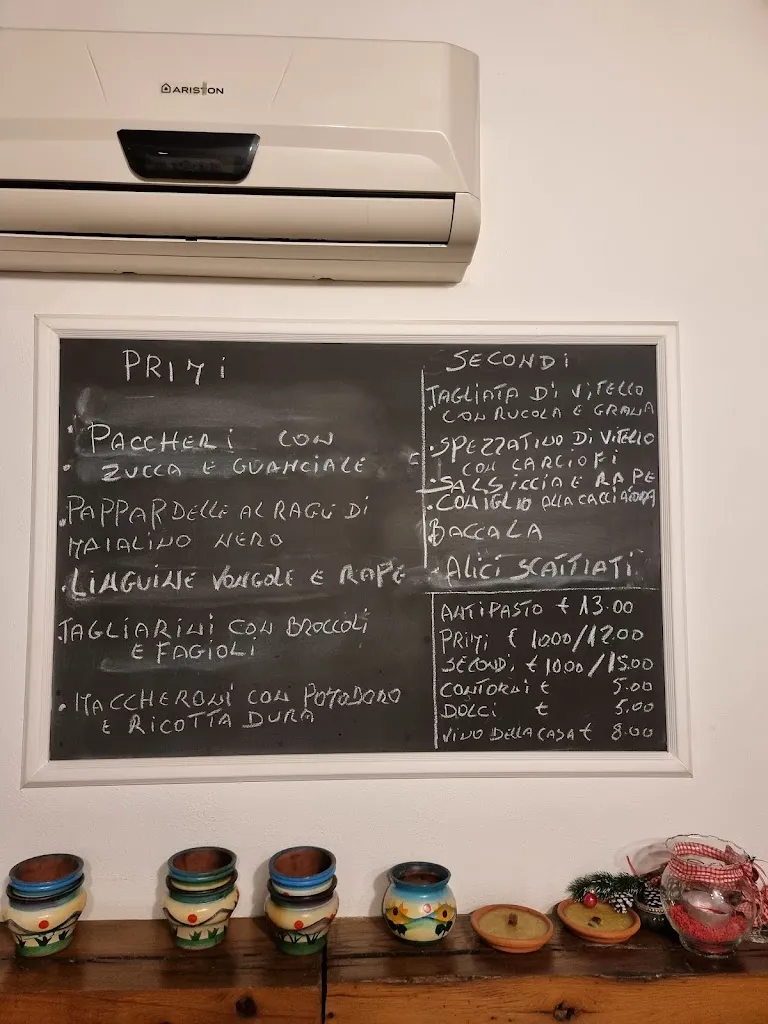 ARISTON
PRIMI
· PACCHERI CON
· ZUCCA E GUANCIALE
· PAPPARDELLE AL RAGU DI
MAIALINO NERO
· LINGUINE VONGOLE E RAPE
· TAGLIARINI CON BROCCOLI
E FAGIOLI
· MACCHERONI CON POMODORO
E RICOTTA DURA
SECONDI
TAGLIATA DI VITELLO
CON RUCOLA E GRANA
· SPEZZATINO DI VITELLO
CON CARCIOFI
· SALSICCIA E RAPE
· CONIGLIO ALLA CACCIATORA
BACCALA
· ALICI SCATTIATI
ANTIPASTO € 13.00
PRIMI € 10.00/12.00
SECONDI € 10.00/15.00
CONTORNI € 5.00
DOLCI € 5.00
VINO DELLA CASA € 8.00